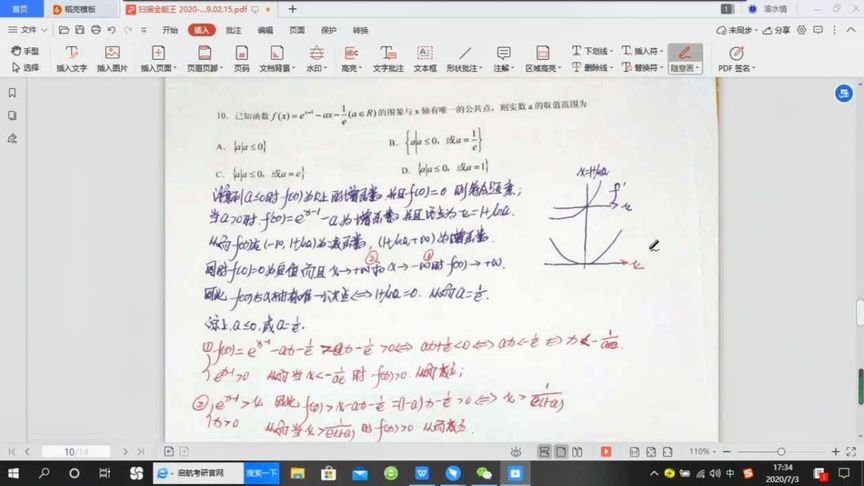 首页 稻壳模板 扫描全能王 2020-...9.02.15.pdf + 1 渝水情
文件 开始 插入 批注 编辑 页面 保护 转换 未同步 分享
手型 选择 插入文字 插入图片 插入页面 页眉页脚 页码 文档背景 水印 高亮 文字批注 文本框 形状批注 注解 区域高亮 下划线 删除线 插入符 替换符 随意画 PDF 签名
10．已知函数 f(x)=e^{x-1}-ax-\frac{1}{e}(a∈R)的图象与 x 轴有唯一的公共点，则实数 a 的取值范围为
A．{a|a≤0} B．{a|a≤0，或a=\frac{1}{e}}
C．{a|a≤0，或a=e} D．{a|a≤0，或a=1}
x=1+lna
f'
x
x
a≤0时 f(x)为R上的增函数 并且f(0)=0 则符合题意；
当a>0时 f'(x)=e^{x-1}-a 为增函数 并且零点为x=1+lna.
从而f(x)在(-∞,1+lna)为减函数，(1+lna,+∞)为增函数.
② ①
同时f(0)=0为定值 而且x→+∞和x→-∞时f(x)→+∞.
因此 f(x)与x轴有唯一公共点⟺1+lna=0. 从而a=\frac{1}{e}.
综上 a≤0，或a=\frac{1}{e}.
① f(x)=e^{x-1}-ax-\frac{1}{e}>-ax-\frac{1}{e}>0⟺ax+\frac{1}{e}<0⟺ax<-\frac{1}{e}⟺x<-\frac{1}{ae}.
e^{x-1}>0 从而当x<-\frac{1}{ae}时 f(x)>0. 从而成立；
② e^{x-1}>x 因此 f(x)>x-ax-\frac{1}{e}=(1-a)x-\frac{1}{e}>0⟺x>\frac{1}{e(1-a)}
x>0 从而当x>\frac{1}{e(1-a)}时f(x)>0 从而成立.
10/14 110%
启航考研官网 搜索一下 中 17:34
2020/7/3